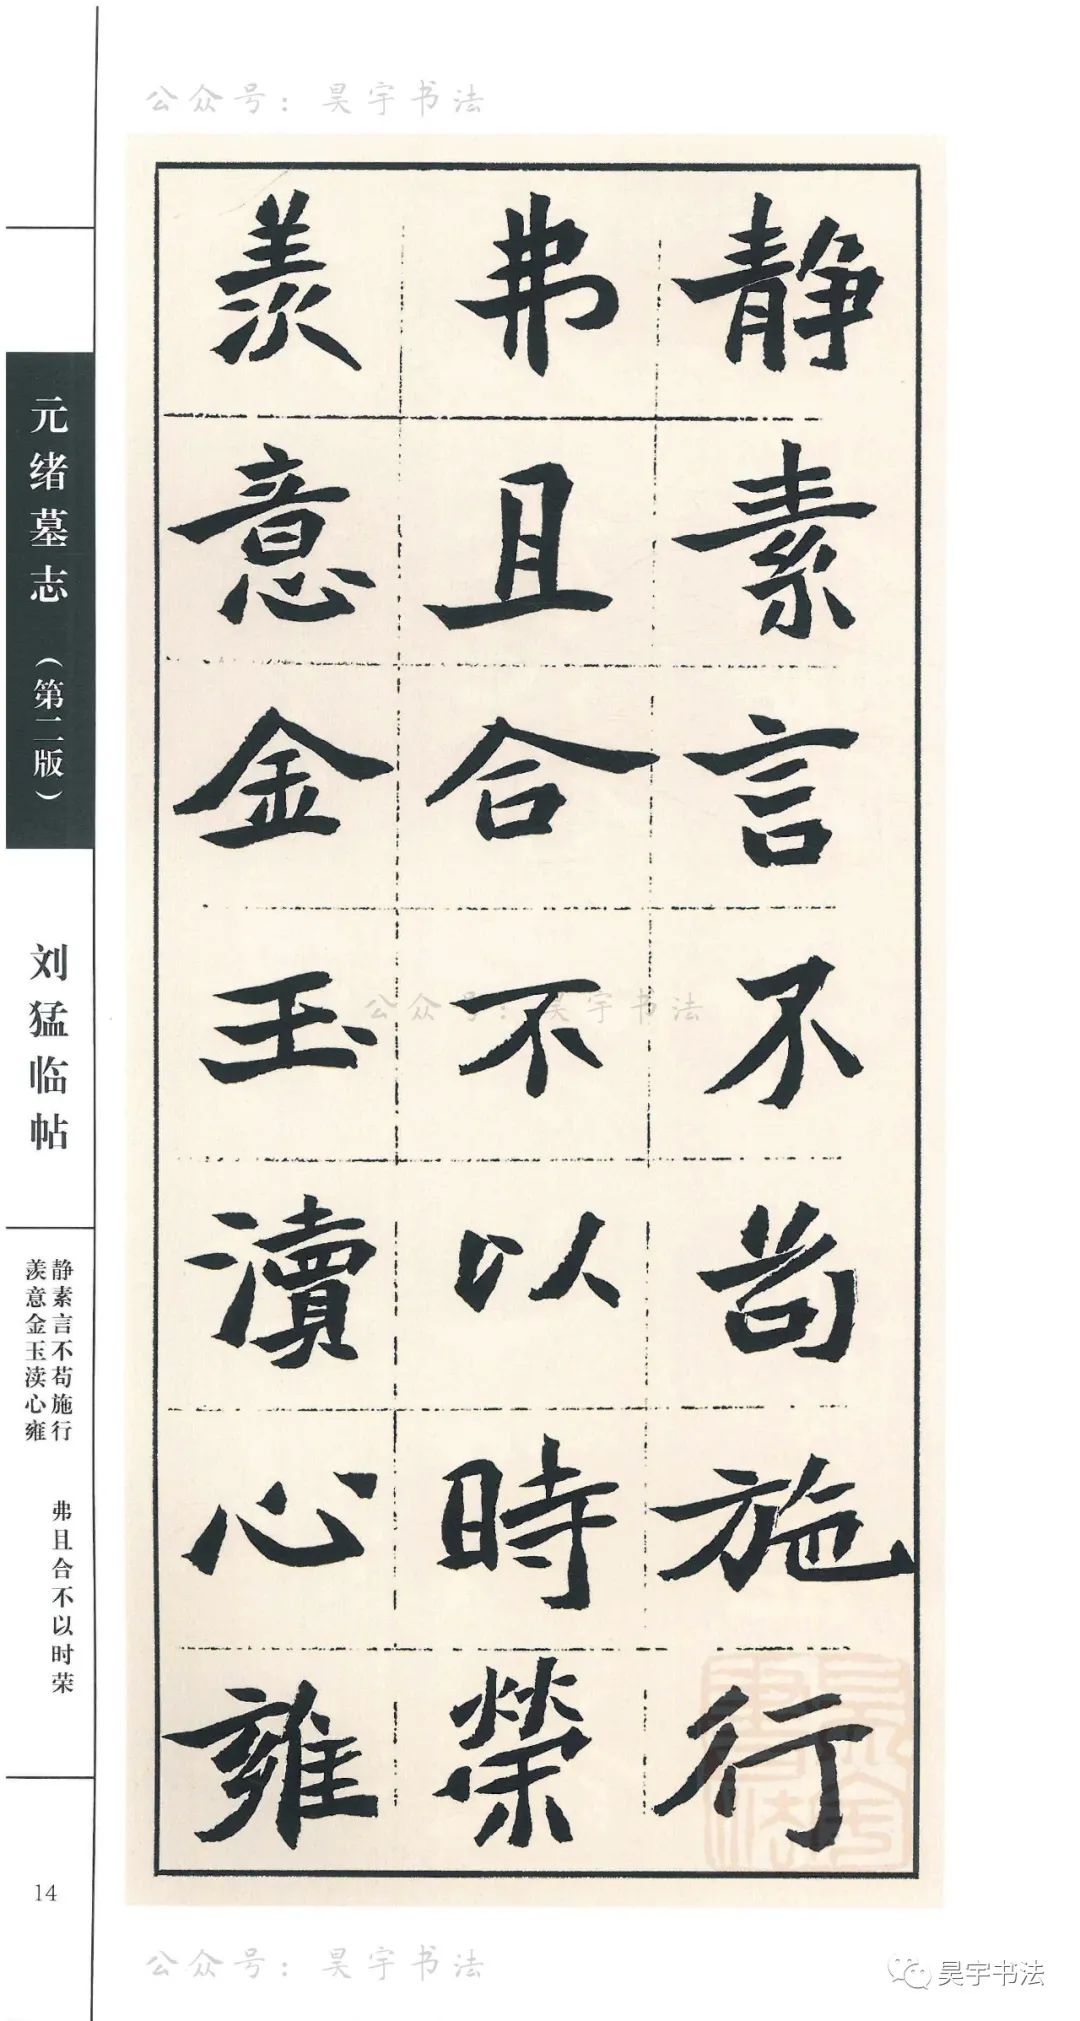 公众号：昊宇书法
静素言不苟施行
弗且合不以時榮
羨意金玉瀆心雍
公众号：昊宇书法
元绪墓志（第二版）
刘猛临帖
静素言不苟施行
羡意金玉渎心雍
弗且合不以时荣
14
公众号：昊宇书法
昊宇书法